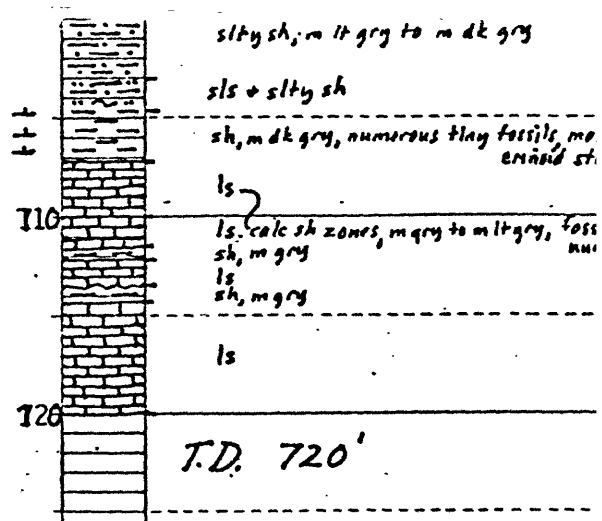 slty sh, m lt gry to m dk gry
sls + slty sh
sh, m dk gry, numerous tiny fossils, mo
crinoid st
ls
710
ls, calc sh zones, m gry to m lt gry, foss
nu
sh, m gry
ls
sh, m gry
ls
720
T.D. 720'